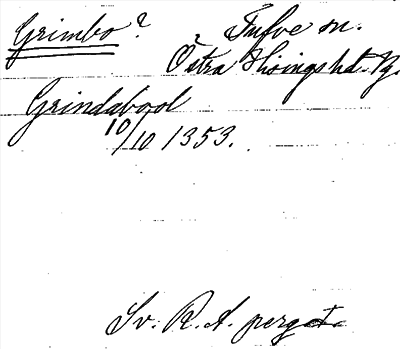 Grimbo? Tufve sn.
Östra Hisings hd. Bg.
Grindabool
10/10 1353.
Sv. R. A. perg.